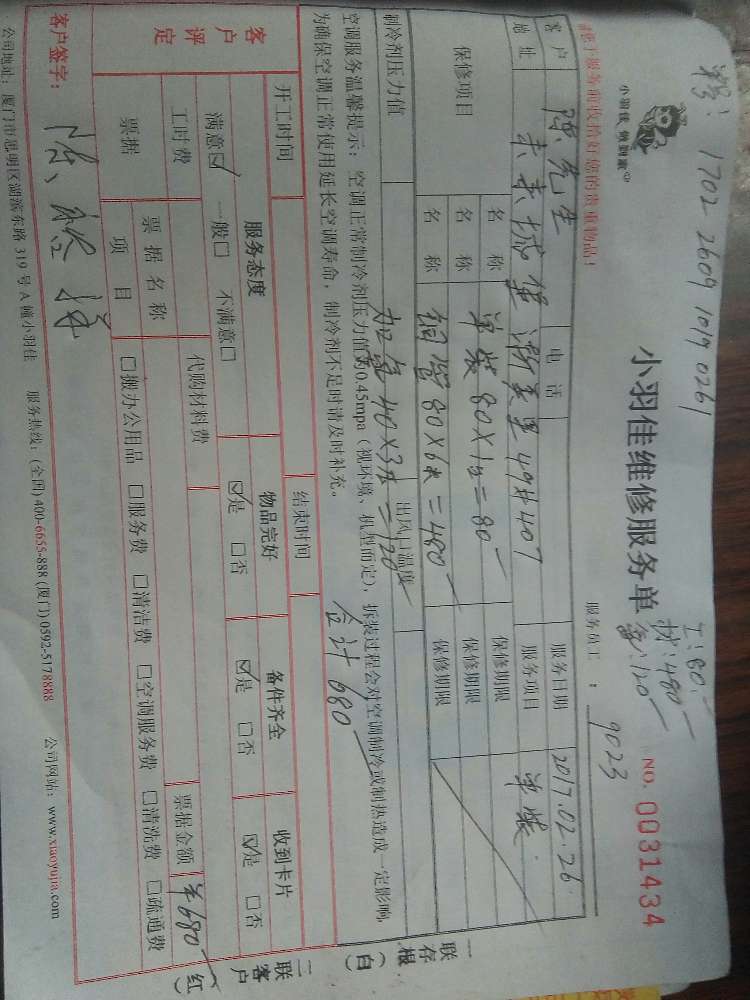 单号：1702 2609 1019 0261
小羽佳 便到家
小羽佳维修服务单
工：80.-
材：480-
氟：120-
NO. 0031434
请您于服务前收拾好您的贵重物品！
服务员工：9023
客户 陈先生 电话 服务日期 2017.02.26
地址 未来城堡浙美里49#407 服务项目 单装
保修项目
名称 单装 80×1台=80- 保修期限
名称 铜管 80×6米=480- 保修期限
保修期限
制冷剂压力值 加氟 40×3 =120 出风口温度
空调服务温馨提示：空调正常制冷剂压力值为0.45mpa（视环境、机型而定），拆装过程会对空调制冷或制热造成一定影响，
为确保空调正常使用延长空调寿命，制冷剂不足时请及时补充。
合计680-
开工时间 结束时间
客户评定
服务态度 物品完好 备件齐全 收到卡片
满意☑ 一般☐ 不满意☐ ☑是 ☐否 ☑是 ☐否 ☑是 ☐否
工时费 代购材料费 票据金额 ￥680-
票据 票据名称
项目 ☐搬办公用品 ☐服务费 ☐清洁费 ☐空调服务费 ☐清洗费 ☐疏通费
客户签字：
公司地址：厦门市思明区湖滨东路319号A幢小羽佳 服务热线：(全国)400-6655-888 (厦门)0592-5178888 公司网站：www.xiaoyujia.com
一联存根（白）
二联客户（红）